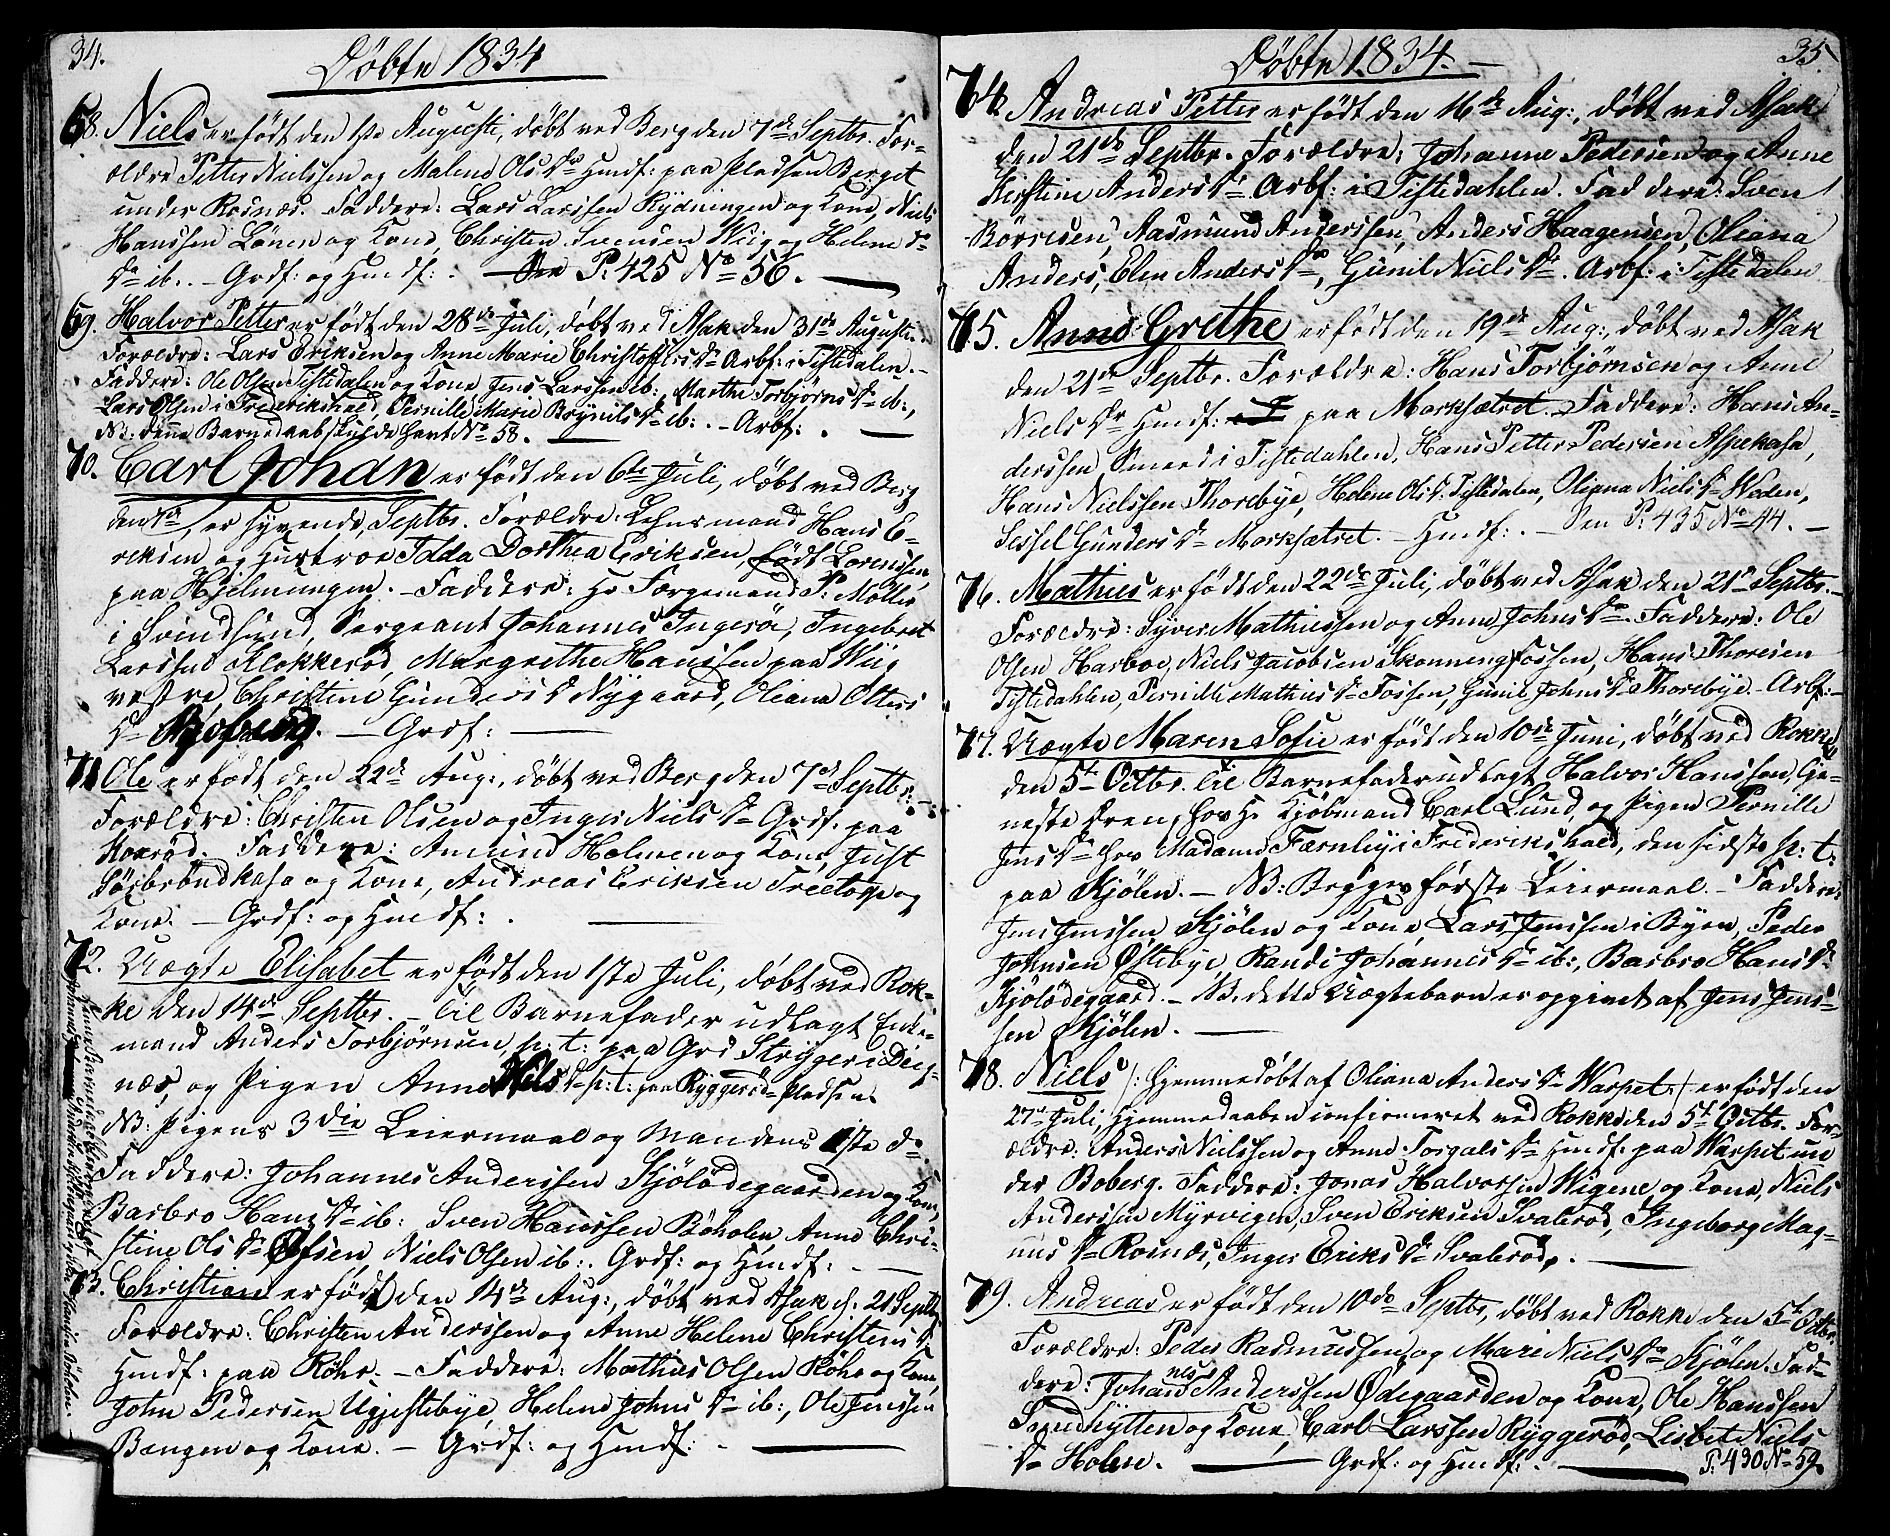 34.
Döbte 1834
68. Niels er födt den 1ste Augusti, döbt ved Berg den 7de Septbr. For-
ældre Petter Nielssen og Malene Ols Dr Huusf: paa Pladsen Berget
under Rosnæs. Faddere: Lars Larssen Rydningen og Kone, Niels
Hanssen Lönen og Kone, Christen Svensen Wiig og Helene Ds
Dr ib: - Grdf: og Huusf: . P: 425 No 56.
69. Halvor Petter er födt den 28de Juli, döbt ved Asak den 31de Augusti.
Forældre: Lars Eriksen og Anne Marie Christoffers Dr Arbf: i Tistedalen.
Faddere: Ole Olsen Tistedalen og Kone, Jens Larssen ib:, Marthe Torbjörns Dr ib:,
Lars Olsen i Frederikshald, Pernille Marie Brynils Dr ib: . - Arbf: .
NB: denne Barnedaab skulde havt No 58.
70. Carl Johan er födt den 6te Juli, döbt ved Berg
den 7de, er syvende, Septbr. Forældre: Lehnsmand Hans E-
riksen og Hustroe Idda Dorthea Eriksen, födt Lorentssen
paa Hjelmungen. - Faddere: Hr Færgemand P: Möller
i Svindsund, Sergeant Johannes Ingeröe, Ingebret
Larssen Klokkeröd, Margrethe Hanssen paa Wiig
vestre, Christine Gunders D Nygaard, Oliana Olters
Dr . - Grdf:
71 Ole er födt den 22de Aug:, döbt ved Berg den 7de Septbr:
Forældre: Christen Olsen og Inger Niels Dr Grdf: paa
Roeröd. Faddere: Amund Holmen og Kone, Just
Sörbröndkasa og Kone, Andreas Eriksen Treetorp og
Kone. - Grdf: og Huusdf: .
72. Uægte Elisabet er födt den 1ste Juli, döbt ved Rok-
ke den 14de Septbr. - Til Barnefader udlagt Enke-
mand Anders Torbjörnsen, p: t: paa Grd Stryger i Deig-
næs, og Pigen Anne Niels Dr p: t: paa Ryggeröd-Pladsen
NB: Pigens 3die Leiermaal og Mandens 1ste Do
Faddere: Johannes Anderssen Kjölödegaarden og Kone,
Barbro Hans Dr ib: Sven Hanssen Böholen, Anne Chri-
stine Ols Dr , Niels Olsen ib: . Grdf: og Huusf: -
73. Christian er födt den 14de Aug:, döbt ved Asak d. 21 Septbr
Forældre: Christen Anderssen og Anne Helene Christens D
Huusf: paa Röhr. - Faddere: Mathias Olsen Röhr og Kone,
John Pedersen Ugjestebye, Helene Johns Dr ib:, Ole Jenssen
Bængen og Kone. - Grdf: og Huusf: .
35.
Döbte 1834. -
74. Andreas Petter er födt den 16de Aug:, döbt ved Asak
den 21de Septbr. Forældre: Johannes Pedersen og Anne
Kirstine Anders Dr Arbf: i Tistedahlen. Faddere: Sven
Börresen, Aasmund Anderssen, Anders Haagensen, Oliana
Anders, Elen Anders Dr, Gunil Niels Dr. Arbf: i Tistedalen
75. Anne Grethe er födt den 19de Aug:, döbt ved Asak
den 21de Septbr. Forældre: Hans Torbjörnsen og Anne
Niels Dr Huusf: paa Marksætret. Faddere: Hans An-
derssen Smeed i Tistedahlen, Hans Petter Pedersen Aspekasa,
Hans Nielssen Thorebye, Helene Ols D. Tistedalen, Oliana Niels Dr Weden,
Sissel Gunders Dr Marksætret. - Huusf: . - Sen P: 435 No 44. -
76. Mathias er födt den 22de Juli, döbt ved Asak den 21de Septbr. -
Forældre: Syver Mathiessen og Anne Johns Dr. Faddere: Ole
Olsen Harboe, Niels Jacobsen Skonningfossen, Hans Thoresen
Tistedahlen, Pernille Mathias Dr Fossen, Gunil Johns D Thorebye - Arbf: -
77. Uægte Maren Sofie er födt den 10de Juni, döbt ved Rokke
den 5te Octbr. Til Barnefader udlagt Halvor Hanssen, tje-
neste Dreng hos Hr Kjöbmand Carl Lund, og Pigen Pernille
Jens Dr hos Madame Færnley i Frederikshald, den sidste p: t:
paa Kjölen. - NB: Begges förste Leiermaal. - Faddere:
Jens Jenssen Kjölen og Kone, Lars Jenssen i Byen, Peder
Johnsen Östebye, Randi Johannes Dr ib:, Barbro Hans Dr
Kjölödegaard. - NB: dette Uægtebarn er opgivet af Jens Jens-
sen Kjölen.
78. Niels /: hjemmedöbt af Oliana Anders Dr Warpet :/ er födt den
27de Juli, Hjemmedaaben confirmeret ved Rokke den 5te Octbr. For-
ældre: Anders Nielssen og Anne Torgals Dr Huusf: paa Warpet un
der Boberg. Faddere: Jonas Halvorssen Wigene og Kone, Niels
Anderssen Myrvigen, Sven Eriksen Svaleröd, Ingeborg Mag-
nus Dr Rosnæs, Inger Eriks Dr Svaleröd.
79. Andreas er födt den 10de Septbr, döbt ved Rokke den 5te Octbr.
Forældre: Peder Rasmussen og Mari Niels Dr Kjölen. Fad-
dere: Johannes Anderssen Ödegaarden og Kone, Ole Hanssen
Sandhytten og Kone, Carl Larssen Ryggeröd, Lisbet Niels
Dr Holen. Grdf: og Huusf: . P: 430 No 59.